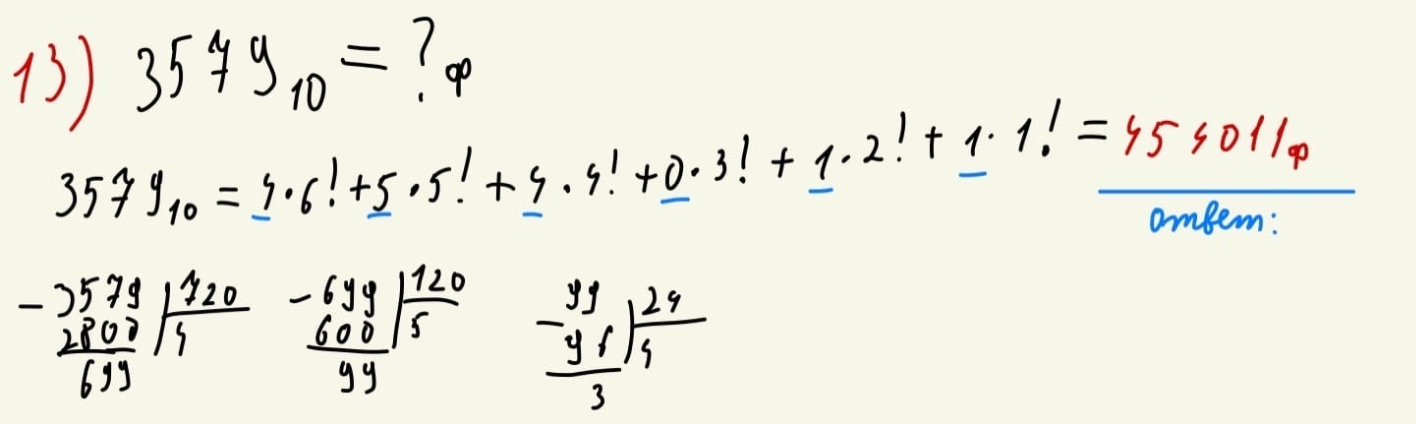 13) 3579₁₀ = ?ф
3579₁₀ = 4·6! + 5·5! + 4·4! + 0·3! + 1·2! + 1·1! = 454011ф
ответ:
- 3579 | 720
2800 | 4
699
- 699 | 120
600 | 5
99
- 99 | 24
96 | 4
3